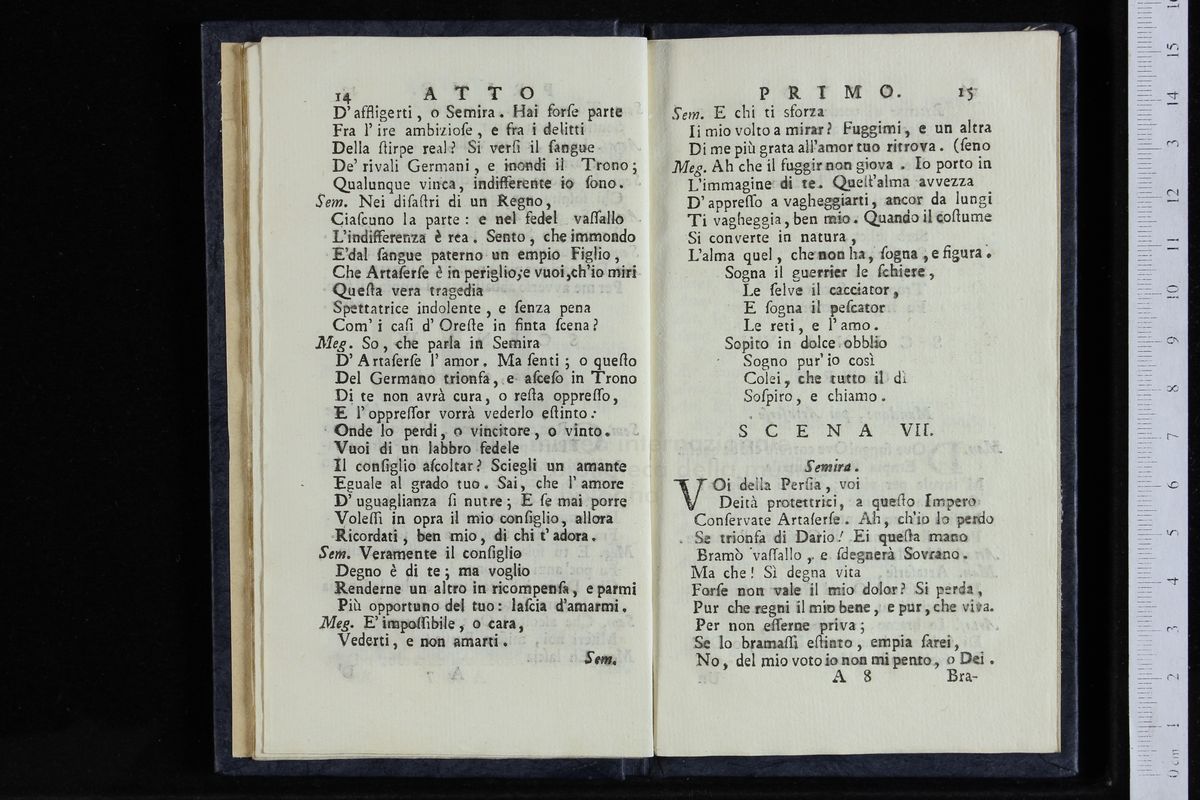 14 ATTO
D'affligerti, o Semira. Hai forſe parte
Fra l'ire ambizioſe, e fra i delitti
Della ſtirpe real? Si verſi il ſangue
De' rivali Germani, e inondi il Trono;
Qualunque vinca, indifferente io ſono.
Sem. Nei diſaſtri di un Regno,
Ciaſcuno la parte: e nel fedel vaſſallo
L'indifferenza è rea. Sento, che immondo
E'dal ſangue paterno un empio Figlio,
Che Artaſerſe è in periglio;e vuoi,ch'io miri
Queſta vera tragedia
Spettatrice indolente, e ſenza pena
Com' i caſi d' Oreſte in finta ſcena?
Meg. So, che parla in Semira
D' Artaſerſe l' amor. Ma ſenti; o queſto
Del Germano trionfa, e aſceſo in Trono
Di te non avrà cura, o reſta oppreſſo,
E l'oppreſſor vorrà vederlo eſtinto:
Onde lo perdi, o vincitore, o vinto.
Vuoi di un labbro fedele
Il conſiglio aſcoltar? Sciegli un amante
Eguale al grado tuo. Sai, che l' amore
D' uguaglianza ſi nutre; E ſe mai porre
Voleſſi in opra il mio conſiglio, allora
Ricordati, ben mio, di chi t'adora.
Sem. Veramente il conſiglio
Degno è di te; ma voglio
Renderne un altro in ricompenſa, e parmi
Più opportuno del tuo: laſcia d'amarmi.
Meg. E' impoſſibile, o cara,
Vederti, e non amarti.
Sem.
PRIMO. 15
Sem. E chi ti sforza
Ii mio volto a mirar? Fuggimi, e un altra
Di me più grata all'amor tuo ritrova. (ſeno
Meg. Ah che il fuggir non giova. Io porto in
L'immagine di te. Queſt'alma avvezza
D' appreſſo a vagheggiarti, ancor da lungi
Ti vagheggia, ben mio. Quando il coſtume
Si converte in natura,
L'alma quel, che non ha, ſogna, e figura.
Sogna il guerrier le ſchiere,
Le ſelve il cacciator,
E ſogna il peſcator
Le reti, e l'amo.
Sopito in dolce obblio
Sogno pur' io così
Colei, che tutto il dì
Soſpiro, e chiamo.
SCENA VII.
Semira.
VOi della Perſia, voi
Deità protettrici, a queſto Impero
Conſervate Artaſerſe. Ah, ch'io lo perdo
Se trionfa di Dario! Ei queſta mano
Bramò vaſſallo, e ſdegnerà Sovrano.
Ma che! Sì degna vita
Forſe non vale il mio dolor? Si perda,
Pur che regni il mio bene, e pur, che viva.
Per non eſſerne priva;
Se lo bramaſſi eſtinto, empia ſarei,
No, del mio voto io non mi pento, o Dei.
A 8 Bra-